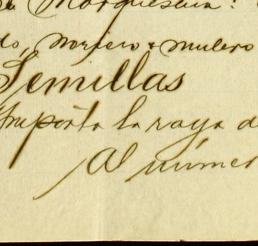 Marquesina:
do, Morfero & mulero
Semillas
Importa la raya d
Al númer